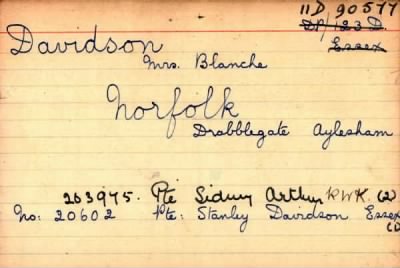 11D 90577
DP/123 D.
Essex
Davidson
Mrs. Blanche
Norfolk
Drabblegate Aylesham
203975. Pte Sidney Arthur R.W.K. (2)
No: 20602 Pte: Stanley Davidson Essex
(1)